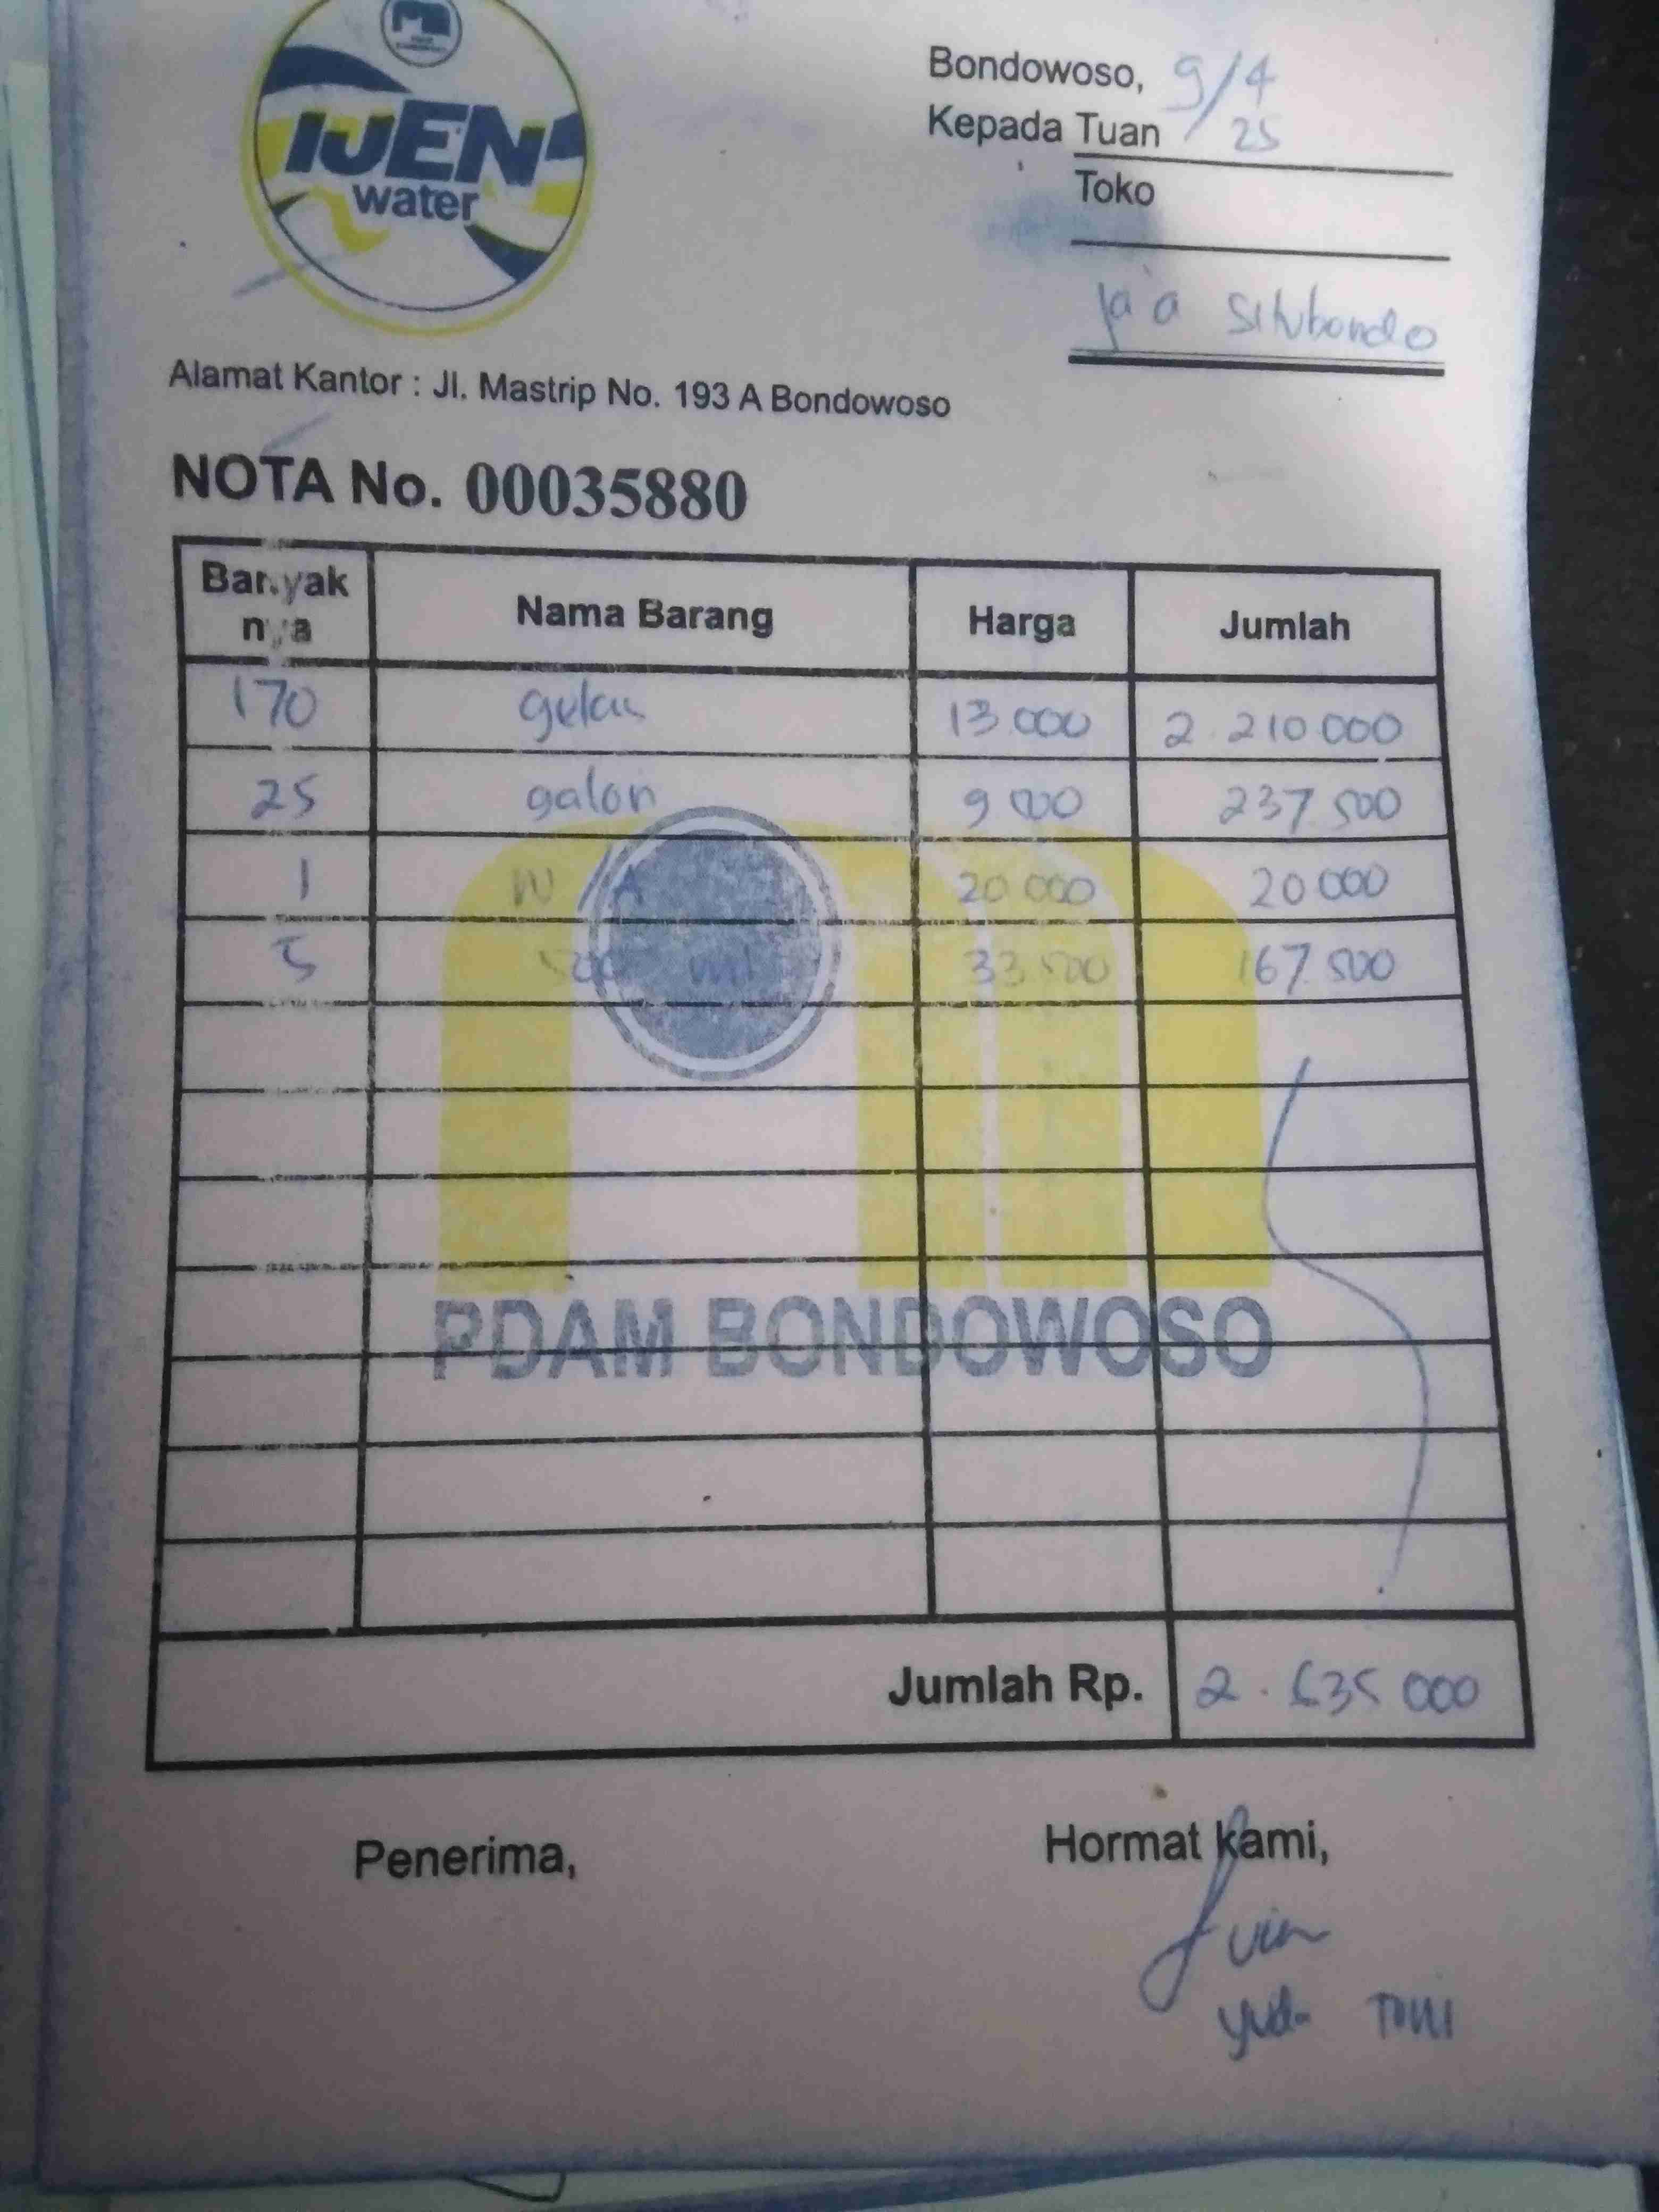 IJEN
water
Bondowoso, 9/4
Kepada Tuan 25
Toko
Situbondo
Alamat Kantor : Jl. Mastrip No. 193 A Bondowoso
NOTA No. 00035880
Banyak nya Nama Barang Harga Jumlah
170 gelas 13.000 2.210.000
25 galon 237.500
1 20.000 20.000
5 500 ml 33.500 167.500
PDAM BONDOWOSO
Jumlah Rp. 2.635.000
Penerima,
Hormat kami,
yuda